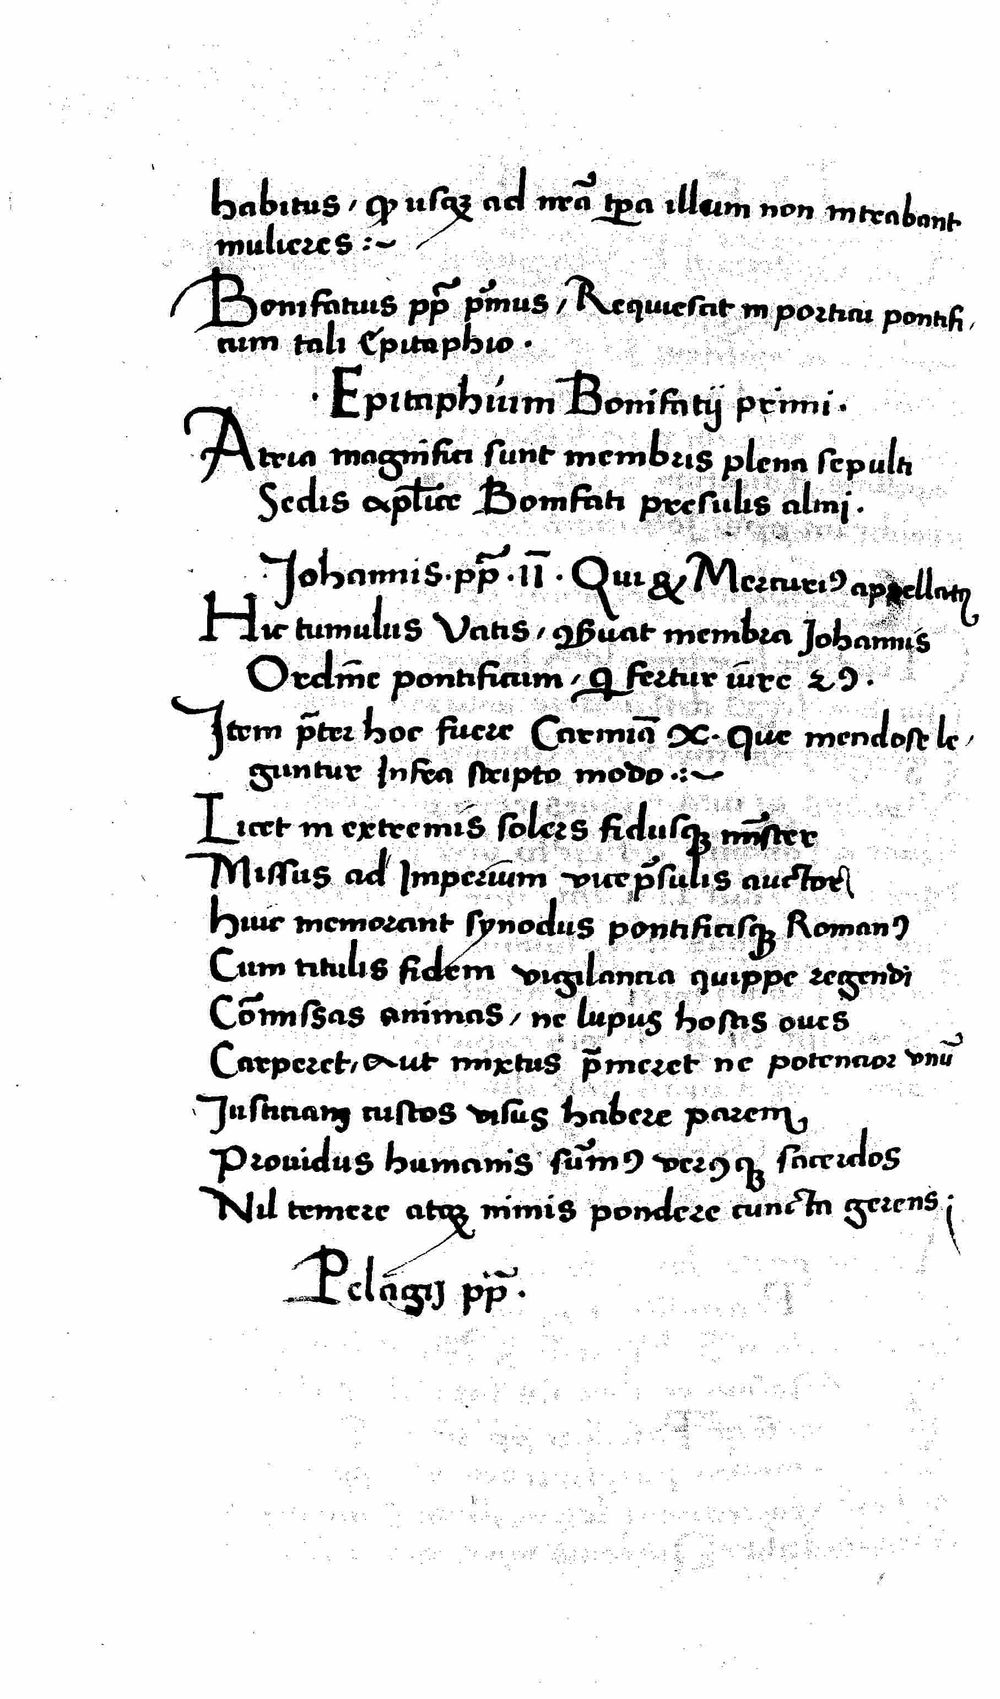 habitus, qꝫ usqꝫ ad nr̃a tp̃a illum non intrabant
mulieres :~
Bonifatius pp̃ pm̃us, Requiescit in porticu pontifi,
cum tali Epitaphio .
. Epitaphium Bonifatij primi .
Atria magnifici sunt membris plena sepulti
Sedis apl̃ice Bonifati presulis almi .
Johannis . pp̃ . II . Qui & Mercuriꝰ appellatꝰ
Hic tumulus Vatis, ꝯẜuat membra Johannis
Ordin̄e pontificum, qͥ fertur iũre 2ꝰ .
Item p̃ter hoc fuere Carmia͞ X. que mendose le,
guntur Infra scripto modo .:~
Licet in extremis solers fidusqꝫ min̄ster
Missus ad Imperium vice p̃sulis auctor
huic memorant synodus pontificisqꝫ Romanꝰ
Cum titulis fidem vigilancia quippe regendi
Com̄issas animas, ne lupus hostis oues
Carperet, aut mixtus p̃meret ne potencior vnũ
Justiciam custos visus habere parem
Prouidus humanis sum̃ꝰ verꝰqꝫ sacerdos
Nil temere atqꝫ nimis pondere cuncta gerens ;
Pelagij pp̃ .